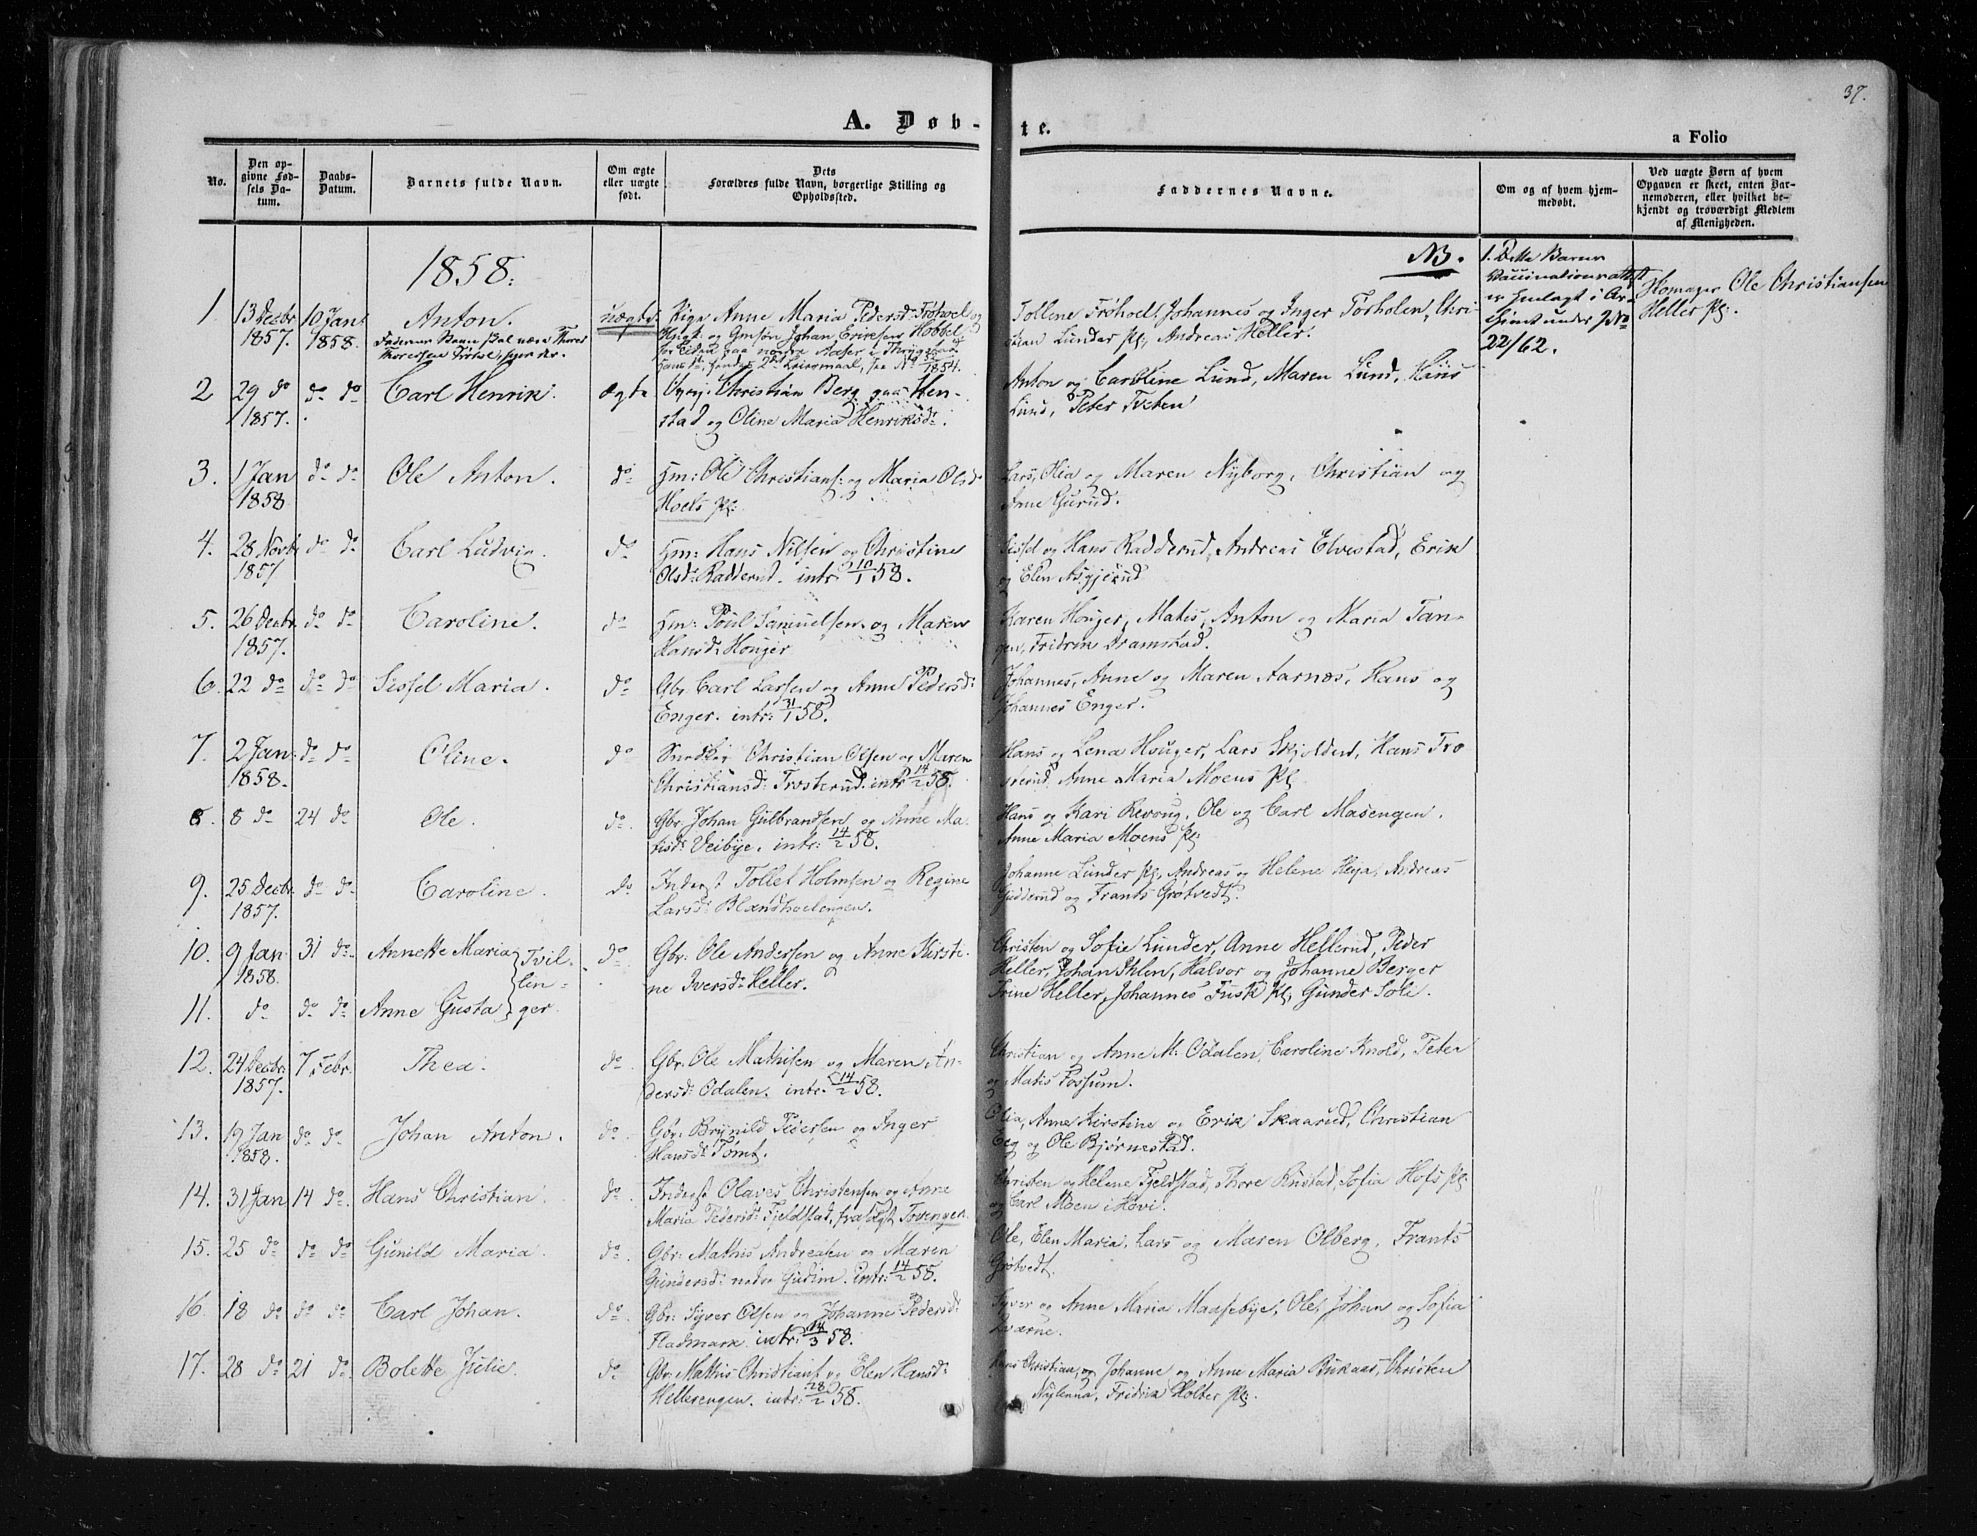 37.
A. Døb-te.
a Folio
No.
Den opgivne Fødsels Datum.
Daabs-Datum.
Barnets fulde Navn.
Om ægte eller uægte født.
Dets Forældres fulde Navn, borgerlige Stilling og Opholdssted.
Faddernes Navne.
Om og af hvem hjemmedøbt.
Ved uægte Børn af hvem Opgaven er skeet, enten Barnemoderen, eller hvilket bekjendt og troværdigt Medlem af Menigheden.
1858.
NB. 1. Dette Barns Vaccinationsattest er henlagt i Archivet under JNo 22/62.
1 13 Decbr 1857. 10 Jan 1858. Anton. uægte Pige Anne Maria Pedersd:
Johannes og Inger Christian Lunder Pl: Andreas Heller.
Homager Ole Christiansen Heller Pl:
2 29 do 1857. do do Carl Henrik. ægte Christian Berg paa Henstad og Oline Maria Henriksd:
Anton og Caroline Lund, Maren Lund, Hans Lund, Peter Tveten
3. 1 Jan 1858 do do Ole Anton. do Hm: Ole Christians: og Maria Olsd Hoels Pl:
Lars, Olea og Maren Nyborg, Christian og Anne Gurud.
4. 28 Novb. 1857 do do Carl Ludvig. do Hm: Hans Nilsen og Christine Olsd: Radderud. intr: 10/1 58.
Sissel og Hans Radderud, Andreas Elvestad, Erik og Elen Asgjerud
5. 26 Decbr. 1857. do do Caroline. do Hm: Poul Samuelsen og Maren Hansd: Houger
Karen Houger, Mathis, Anton og Maria Tangen, Fridrik Dramstad.
6. 22 do do do Sissel Maria. do Gbr. Carl Larsen og Anne Pedersd: Enger. intr: 31/1 58.
Johannes, Anne og Maren Aarnæs, Hans og Johannes Enger.
7. 2 Jan: 1858. do do Oline. do Christian Olsen og Maren Christiansd: Trosterud. intr 14/2 58.
Hans og Lena Houger, Lars Skjolden, Hans Anne Maria Moens Pl:
8. 8 do 24 do Ole. do Gbr. Johan Gulbrandsen og Anne Matisd: Veibye. intr: 14/2 58.
Hans og Kari Revoug, Ole og Carl Masengen. Anne Maria Moens Pl:
9. 25 Decbr. 1857. do do Caroline. do Inderst Tollef Holmsen og Regine Larsd: Blændhoelengen.
Johanne Lunder Pl: Andreas og Helene Heya, Andreas Gudderud og Frants Grøtvedt.
10. 9 Jan 1858. 31 do Annette Maria } Tvillinger do Gbr: Ole Andersen og Anne Kirstine Iversd: Heller.
Christen og Sofie Lunder, Anne Hellerud, Peder Heller, Johan Ihlen, Halvor og Johanne Berger
11. do do do Anne Gusta
Trine Heller, Johannes Fusk Pl: Gunder Soli.
12. 24 Decbr: 1857. 7 Febr. Thea. do Gbr. Ole Mathisen og Maren Andersd: Odalen. intr. 14/2 58.
Christian og Anne M. Odalen, Caroline Knold, Peter og Matis Fossum.
13. 19 Jan 1858. do do Johan Anton. do. Gbr: Brynild Pedersen og Inger Hansd: Tomt.
Olia, Anne Kirstine og Erik Skaarud, Christian Eeg og Ole Bjørnestad.
14. 31 Jan 14 do. Hans Christian. do Inderst Olaves Christensen og Anne Maria Pedersd: Fjeldstad, Tovengen.
Christen og Helene Fjeldstad, Thore Rustad, Sofia Hols Pl: og Carl Moen i Hovi.
15. 25 do do do Gunild Maria. do. Gbr: Mathis Andreasen og Maren Gundersd: nedre Gudim. intr: 14/2 58.
Ole, Elen Maria, Lars og Maren Olberg. Frants Grøtvedt.
16. 18 do do do Carl Johan. do Gbr: Syver Olsen og Johanne Pedersd: Fladmark. intr: 14/3 58.
Syver og Anne Maria Maasebye, Ole, Johan og Sofia Kværne.
17. 28 do 21 do Bolette Julie. do Gbr: Mathis Christians og Elen Hansd: Hellerengen. intr: 28/2 58.
Hans Christian, og Johanne og Anne Maria Bukaas, Christen Nylenna, Fridrik Holter Pl: